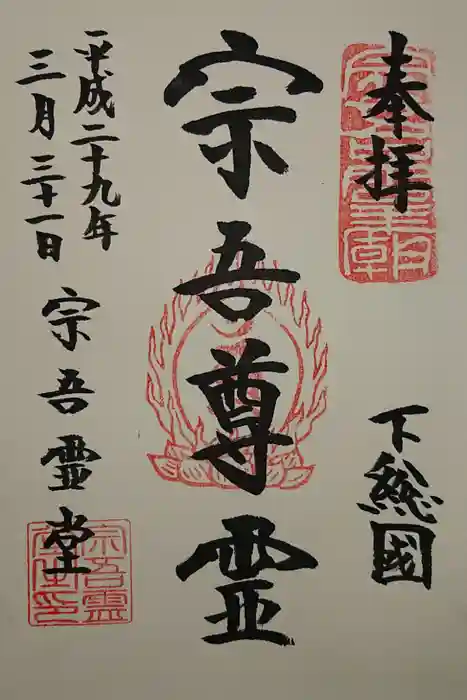 奉拝
下総國
宗吾尊霊
平成二十九年
三月三十一日
宗吾霊堂